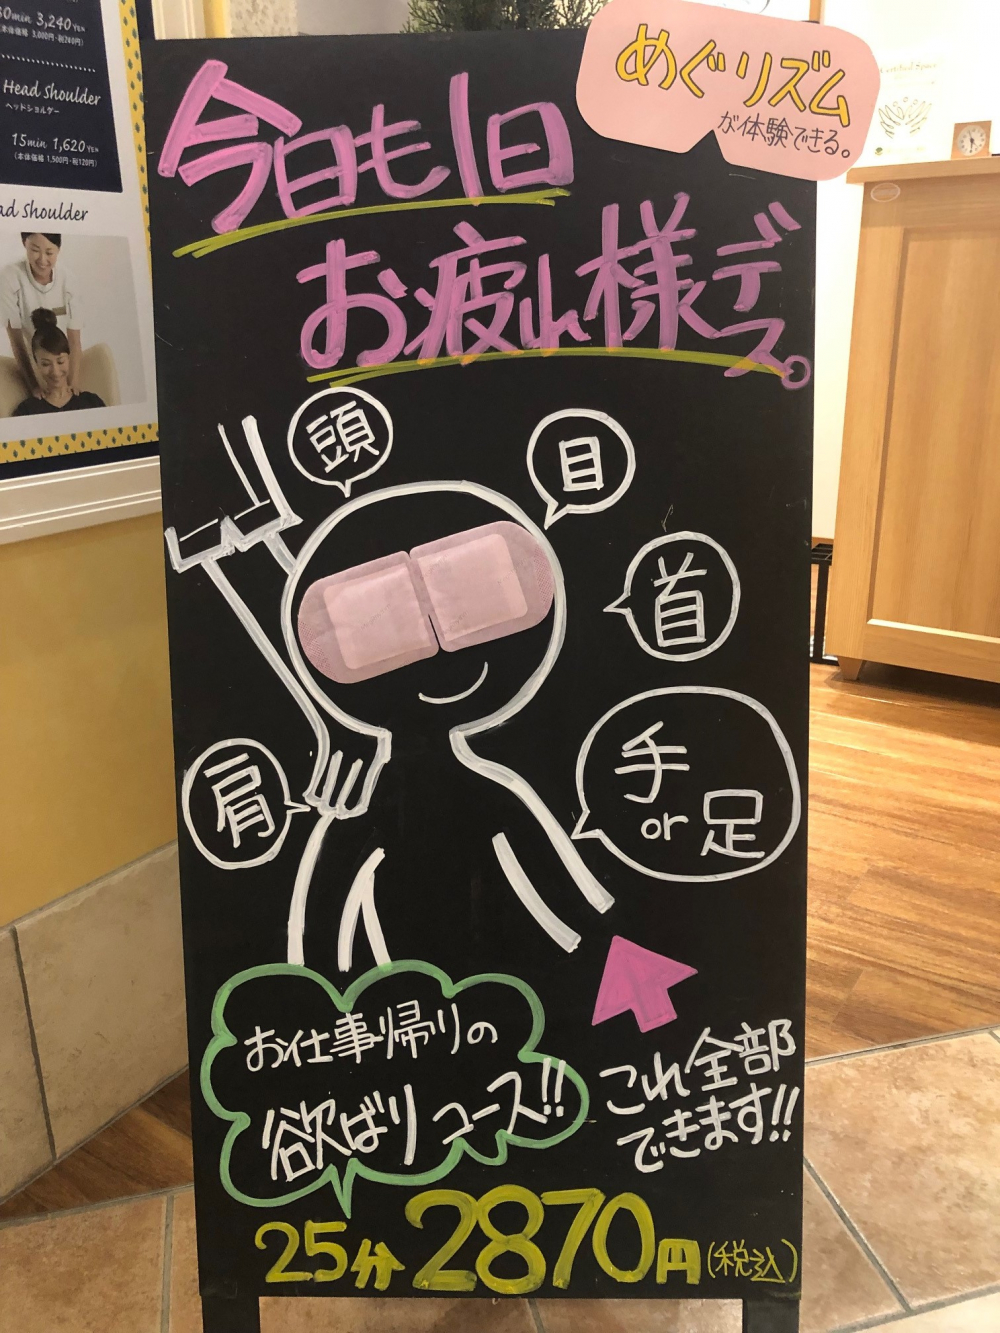 30min 3,240 YEN
(本体価格 3,000円・税240円)
Head Shoulder
ヘッドショルダー
15min 1,620 YEN
(本体価格 1,500円・税120円)
ad Shoulder
めぐリズム
が体験できる。
今日も1日
お疲れ様デス。
頭
目
首
肩
手
or 足
お仕事帰りの
欲ばりコース!!
これ全部
できます!!
25分 2870円(税込)